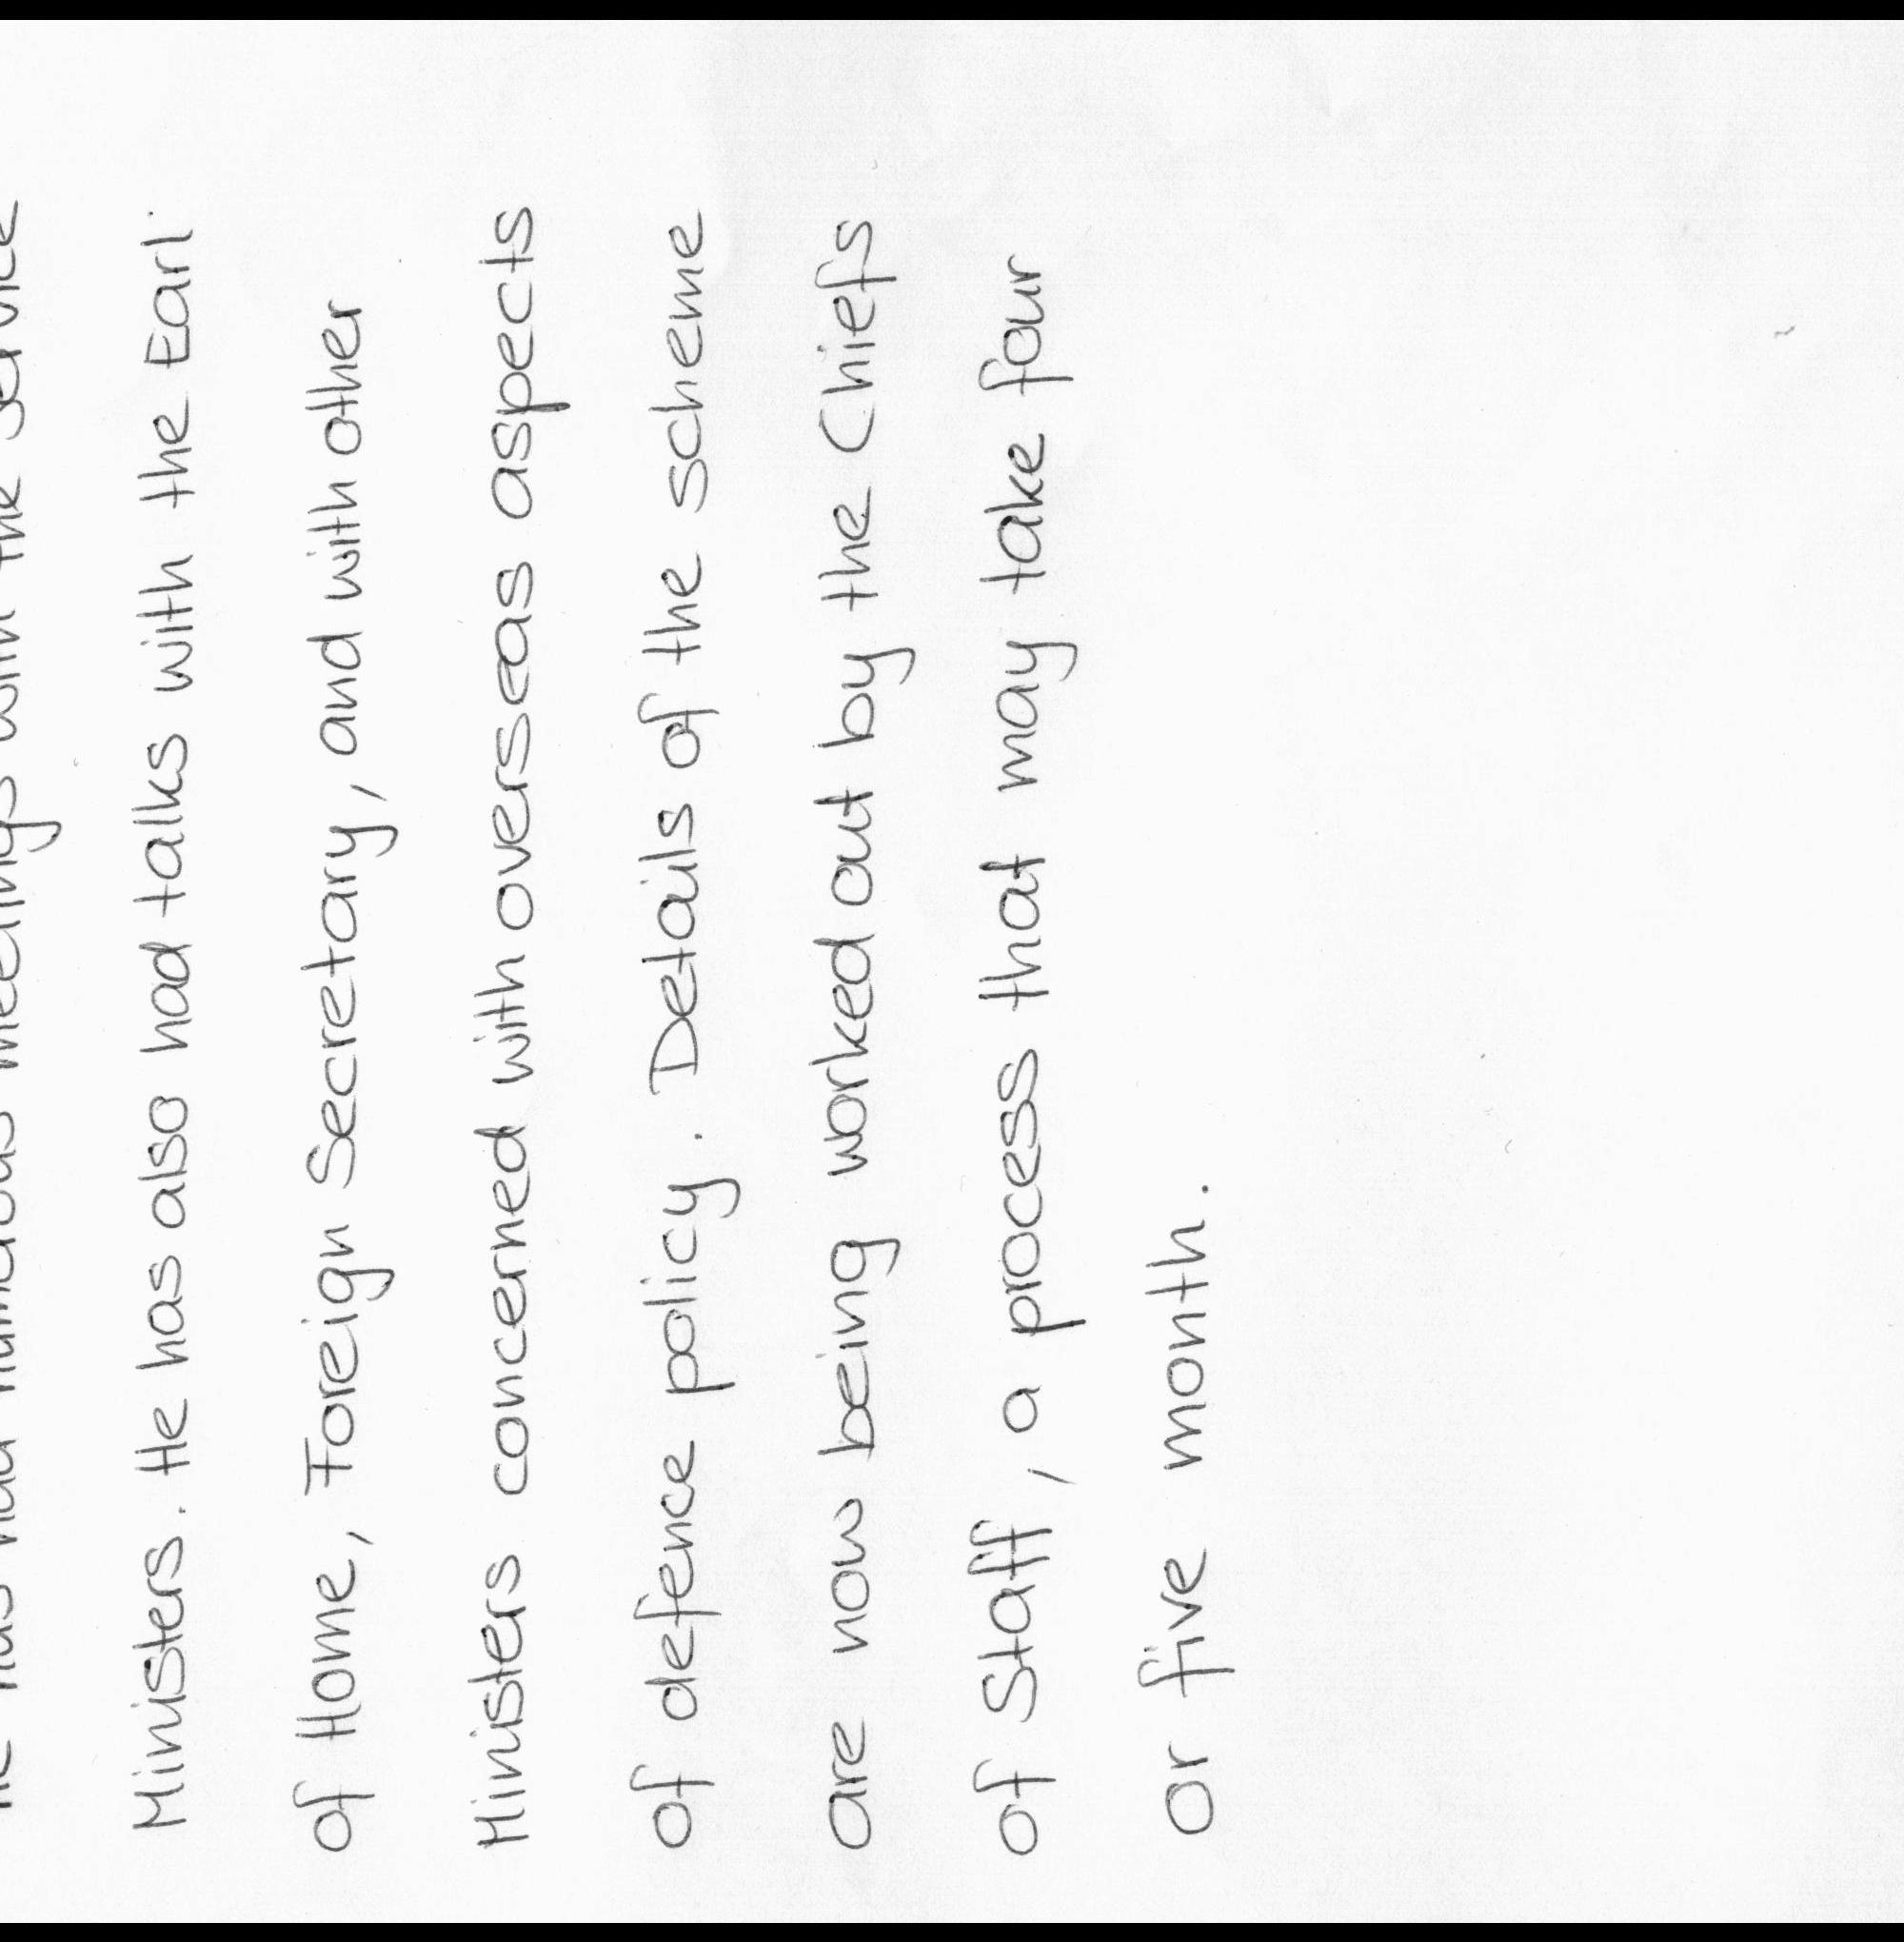 He has had numerous meetings with the service
Ministers. He has also had talks with the Earl
of Home, Foreign Secretary, and with other
Ministers concerned with overseas aspects
of defence policy. Details of the scheme
are now being worked out by the Chiefs
of Staff, a process that may take four
or five month.